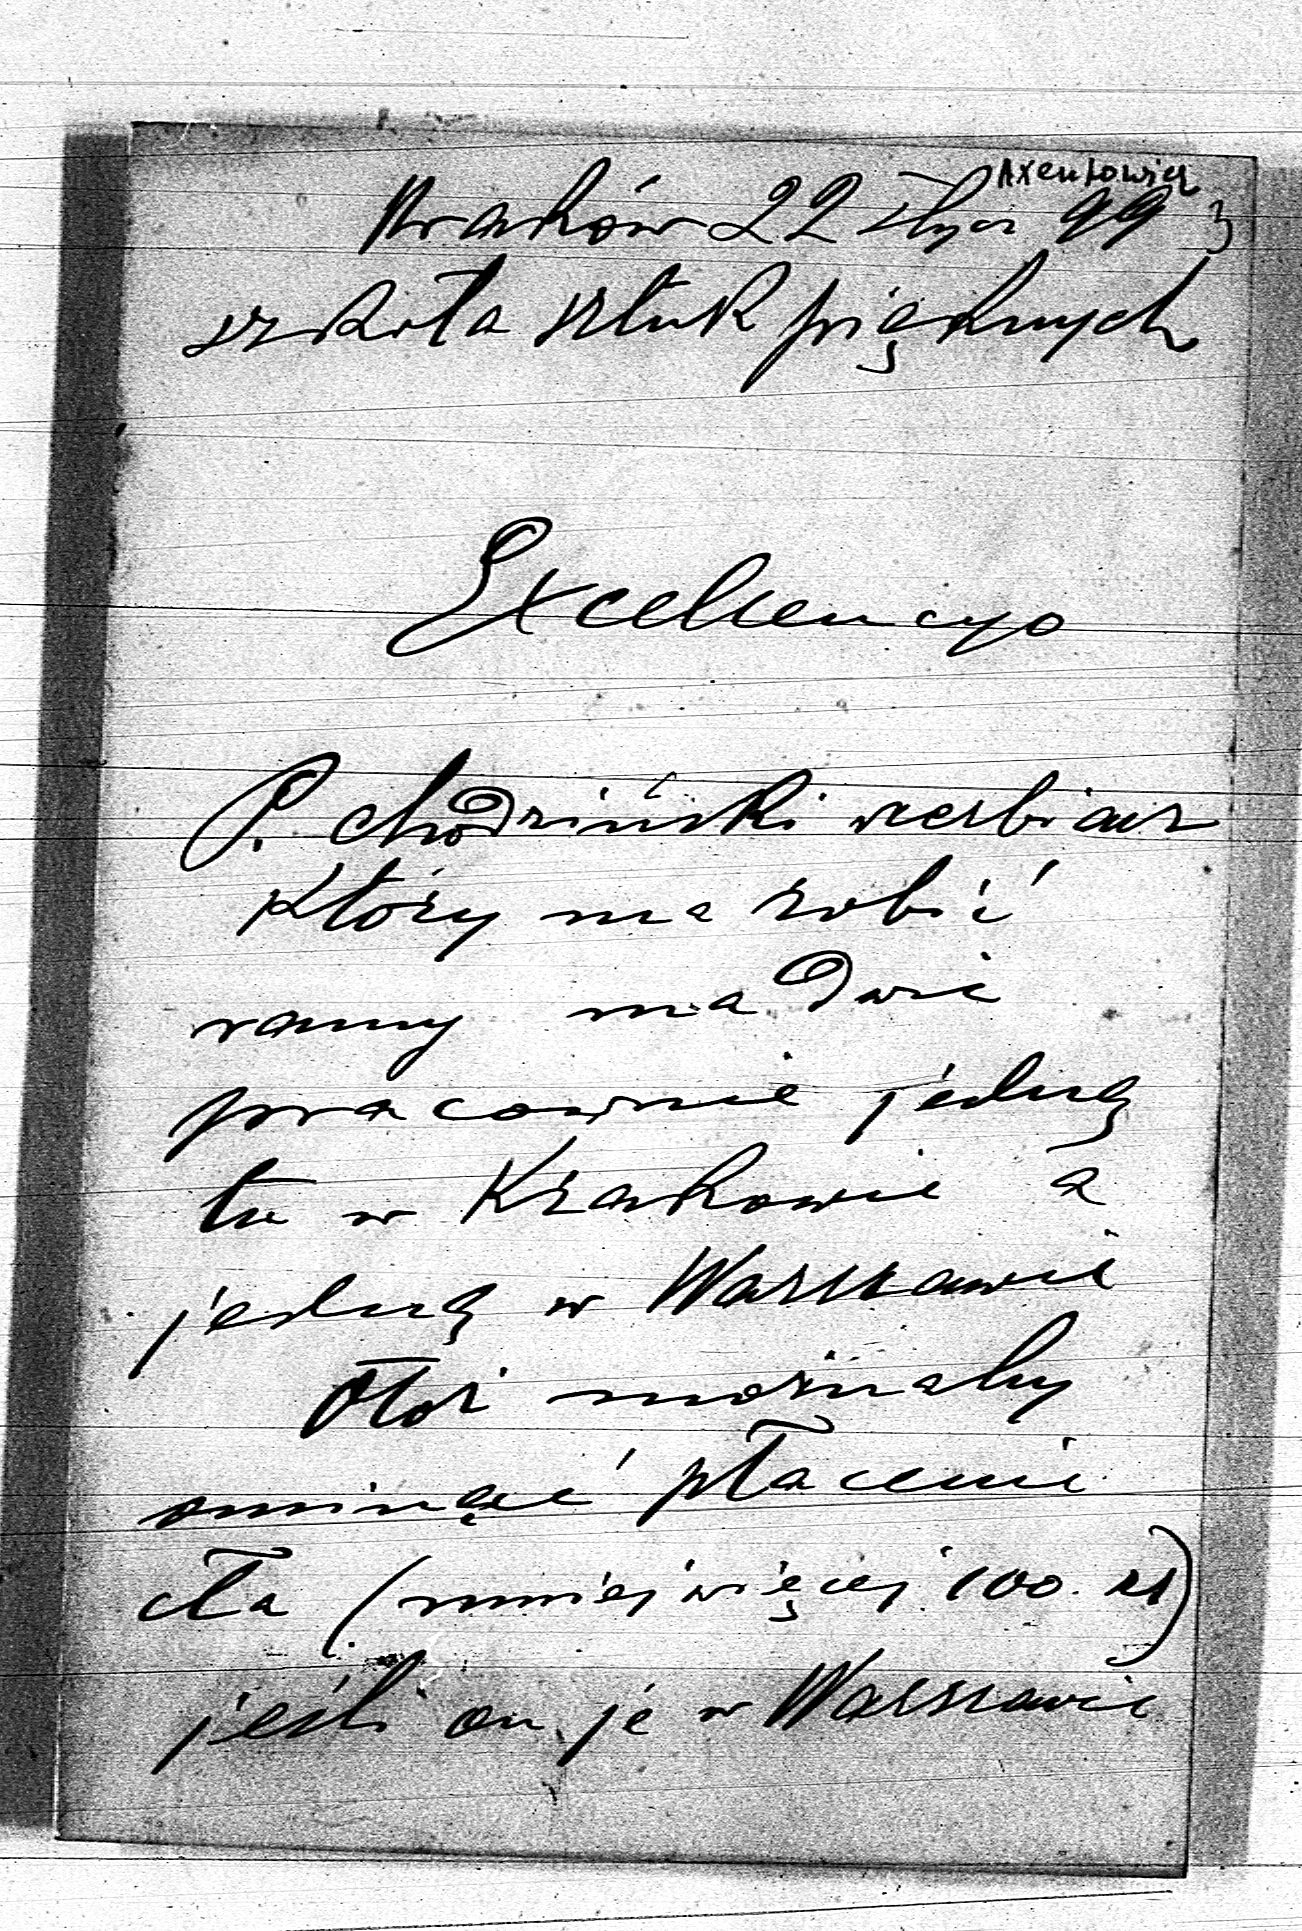 Axentowicz
Kraków 22 stycz 99 3
szkoła sztuk pięknych
Excellencyo
P. chodziński rzezbiarz
który ma robić
ramy ma dwie
pracownie jedną
tu w Krakowie a
jedną w Warszawie
Otoż możnaby
ominąć płacenie
cła (mniej więcej 100. zł)
jeśli on je w Warszawie